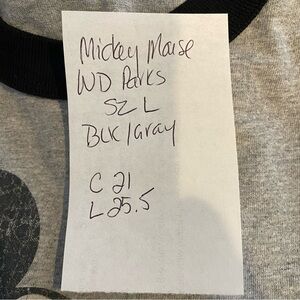 Mickey Mouse
WD Parks
SZ L
BLK/Gray
C 21
L 25.5